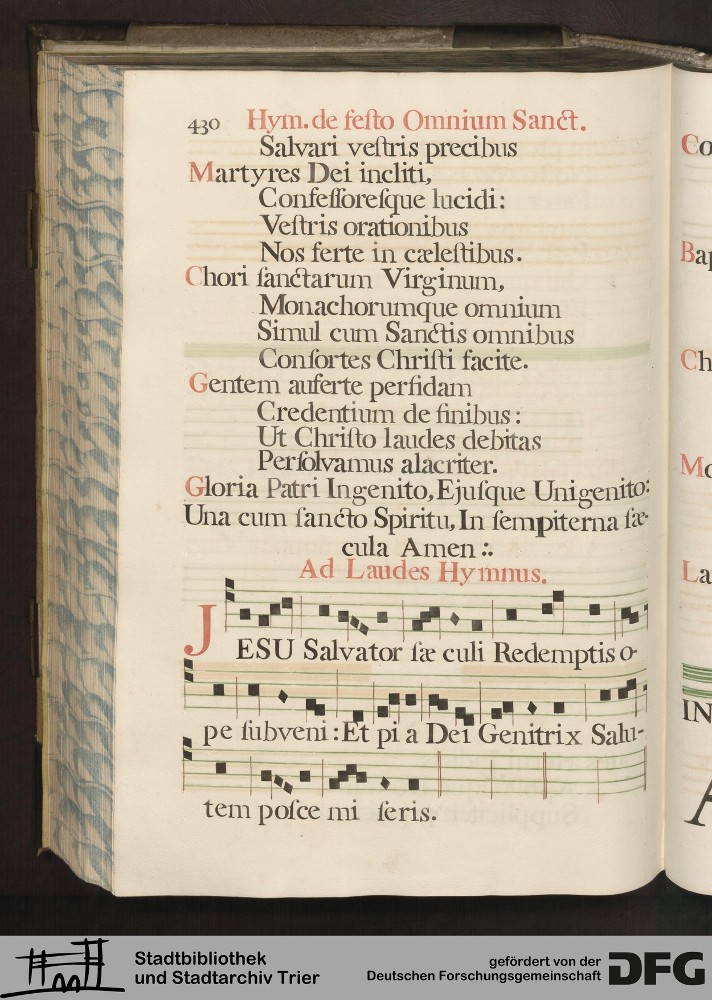 430 Hym. de feſto Omnium Sanct.
Salvari veſtris precibus
Martyres Dei incliti,
Confeſſoreſque lucidi:
Veſtris orationibus
Nos ferte in cæleſtibus.
Chori ſanctarum Virginum,
Monachorumque omnium
Simul cum Sanctis omnibus
Conſortes Chriſti facite.
Gentem auferte perfidam
Credentium de finibus:
Ut Chriſto laudes debitas
Perſolvamus alacriter.
Gloria Patri Ingenito, Ejuſque Unigenito:
Una cum ſancto Spiritu, In ſempiterna ſæ-
cula Amen :.
Ad Laudes Hymnus.
JESU Salvator ſæ culi Redemptis o-
pe ſubveni: Et pi a Dei Genitrix Salu-
tem poſce mi ſeris.
Co
Bap
Ch
Mo
La
IN
A
Stadtbibliothek
und Stadtarchiv Trier
gefördert von der
Deutschen Forschungsgemeinschaft
DFG